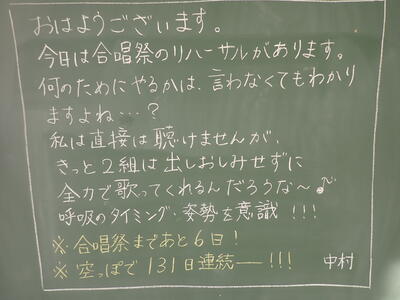 おはようございます。
今日は合唱祭のリハーサルがあります。
何のためにやるかは、言わなくてもわかり
ますよね…?
私は直接は聴けませんが、
きっと2組は出しおしみせずに
全力で歌ってくれるんだろうな〜♪
呼吸のタイミング・姿勢を意識!!!
※合唱祭まであと6日!
※空っぽで131日連続──!!! 中村